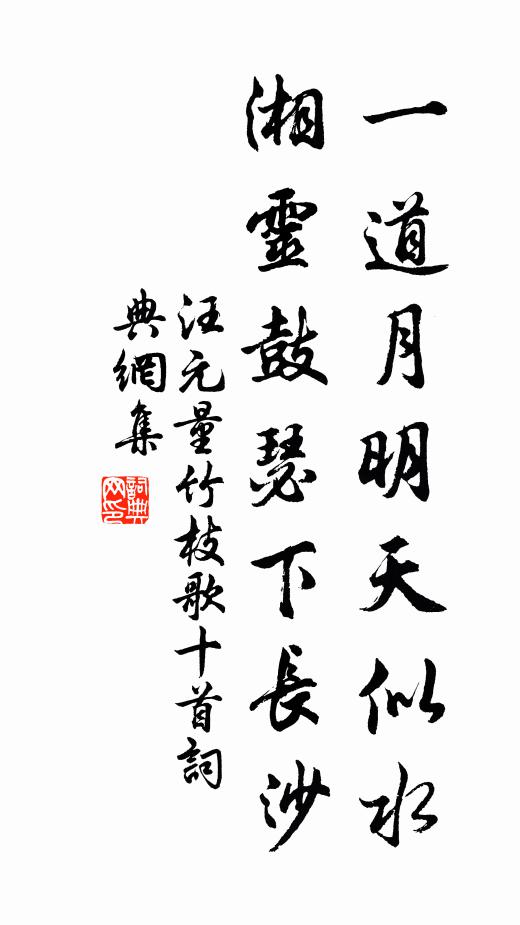 一道月明天似水
湘靈鼓瑟下長沙
汪元量竹枝歌十首詞
典網集
詞典網印